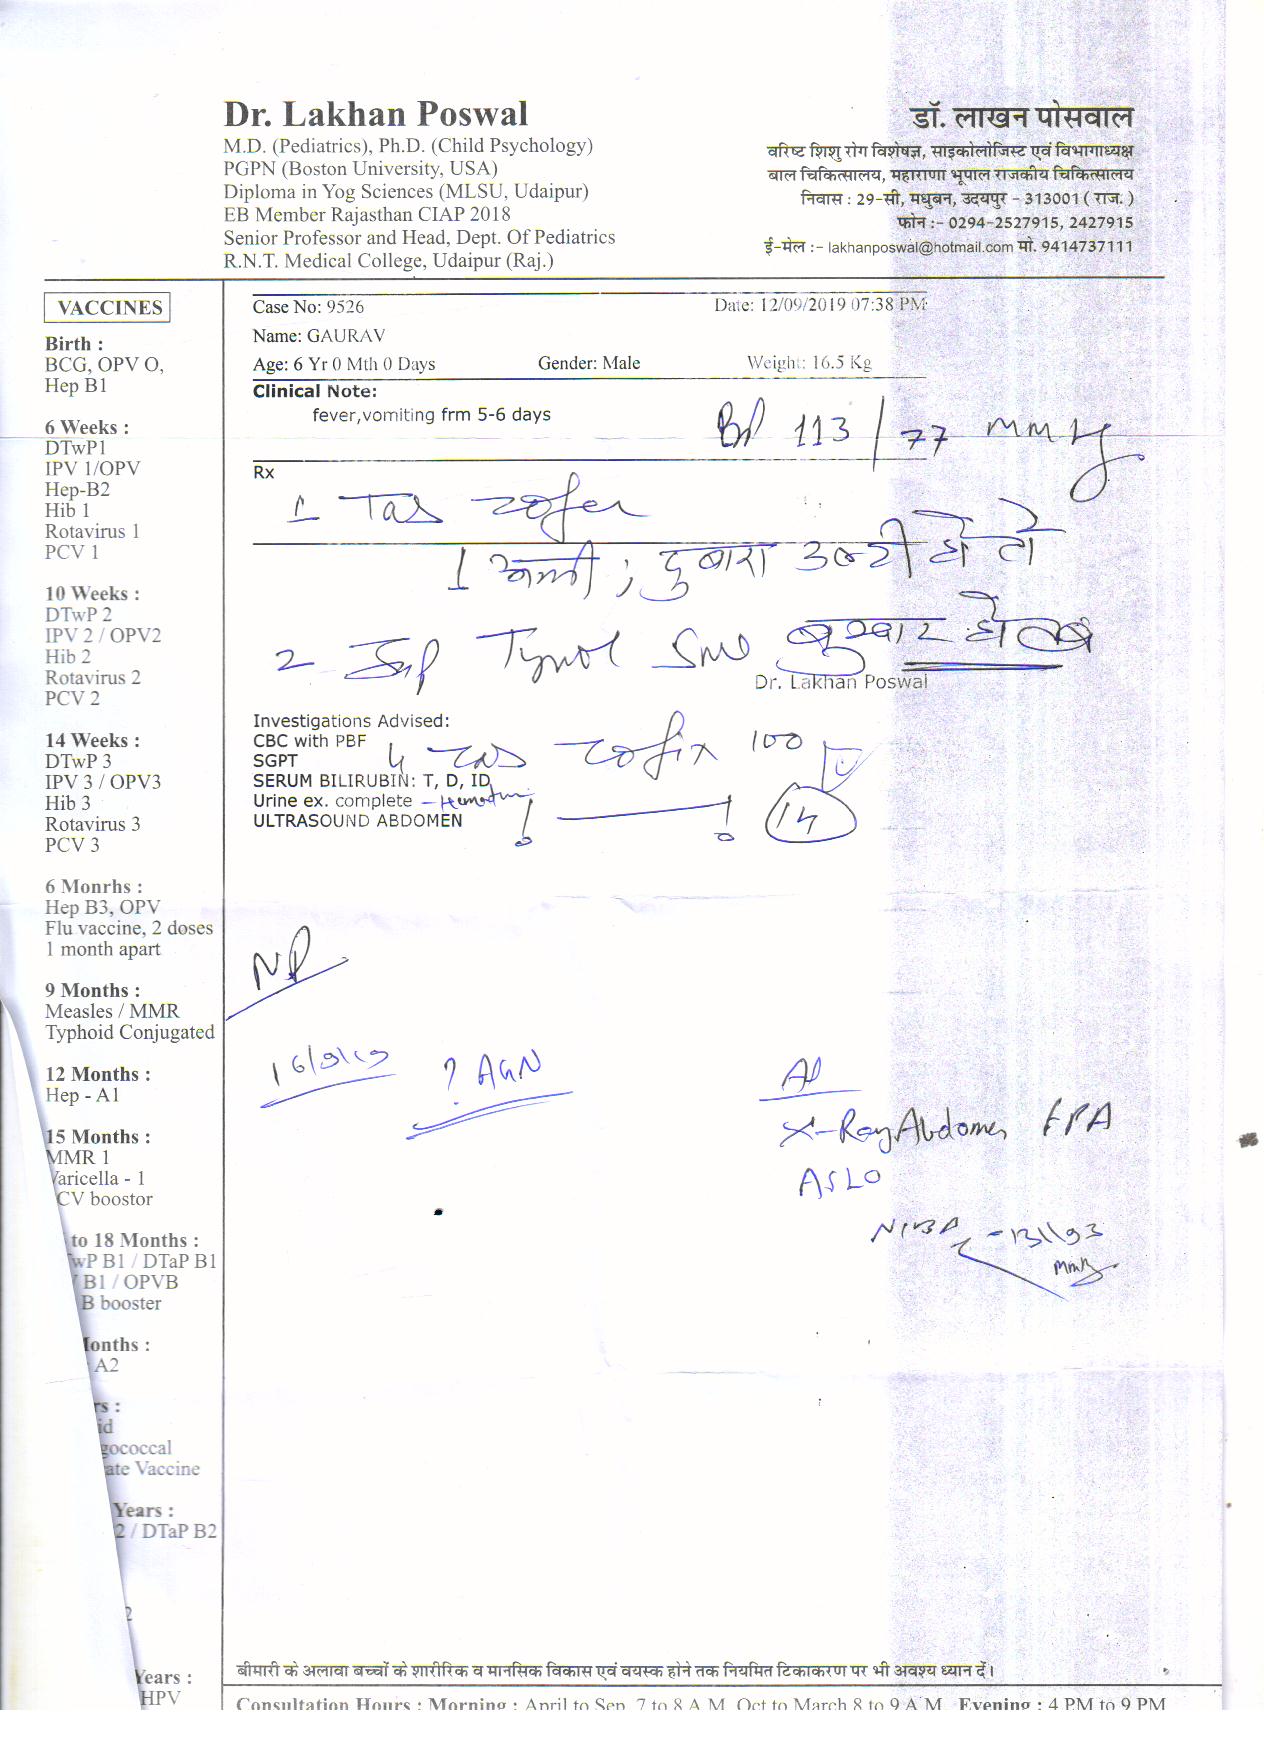 Dr. Lakhan Poswal
M.D. (Pediatrics), Ph.D. (Child Psychology)
PGPN (Boston University, USA)
Diploma in Yog Sciences (MLSU, Udaipur)
EB Member Rajasthan CIAP 2018
Senior Professor and Head, Dept. Of Pediatrics
R.N.T. Medical College, Udaipur (Raj.)
डॉ. लाखन पोसवाल
वरिष्ट शिशु रोग विशेषज्ञ, साइकोलोजिस्ट एवं विभागाध्यक्ष
बाल चिकित्सालय, महाराणा भूपाल राजकीय चिकित्सालय
निवास : 29-सी, मधुबन, उदयपुर - 313001 ( राज. )
फोन :- 0294-2527915, 2427915
ई-मेल :- lakhanposwal@hotmail.com मो. 9414737111
VACCINES
Birth :
BCG, OPV O,
Hep B1
6 Weeks :
DTwP1
IPV 1/OPV
Hep-B2
Hib 1
Rotavirus 1
PCV 1
10 Weeks :
DTwP 2
IPV 2 / OPV2
Hib 2
Rotavirus 2
PCV 2
14 Weeks :
DTwP 3
IPV 3 / OPV3
Hib 3
Rotavirus 3
PCV 3
6 Monrhs :
Hep B3, OPV
Flu vaccine, 2 doses
1 month apart
9 Months :
Measles / MMR
Typhoid Conjugated
12 Months :
Hep - A1
15 Months :
MMR 1
Varicella - 1
CV boostor
to 18 Months :
wP B1 / DTaP B1
B1 / OPVB
B booster
Months :
A2
rs :
id
gococcal
ate Vaccine
Years :
2 / DTaP B2
2
Years :
HPV
Case No: 9526 Date: 12/09/2019 07:38 PM
Name: GAURAV
Age: 6 Yr 0 Mth 0 Days Gender: Male Weight: 16.5 Kg
Clinical Note:
fever,vomiting frm 5-6 days
BP 113/77
Rx
1 Tab Zofer
दुबारा उल्टी हो तो
2 Syp Tymol 5ml बुखार हो तब
Dr. Lakhan Poswal
Investigations Advised:
CBC with PBF
SGPT
SERUM BILIRUBIN: T, D, ID
Urine ex. complete
ULTRASOUND ABDOMEN
Tab Zofix 100
14
16/9/19
? AGN
X-Ray Abdomen
ASLO
NIBP
बीमारी के अलावा बच्चों के शारीरिक व मानसिक विकास एवं वयस्क होने तक नियमित टिकाकरण पर भी अवश्य ध्यान दें।
Consultation Hours : Morning : April to Sep. 7 to 8 A.M. Oct to March 8 to 9 A.M. Evening : 4 PM to 9 PM